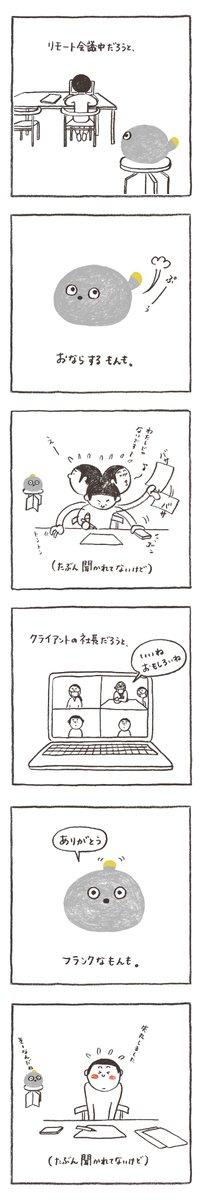 リモート会議中だろうと、
ぷ
ぅ
おならする もんも。
わたしじゃ
ないです!
バ
サ
トントン
(たぶん聞かれてないけど)
クライアントの社長だろうと、
いいね
おもしろいね
ありがとう
フランクなもんも。
失礼しました
(たぶん聞かれてないけど)